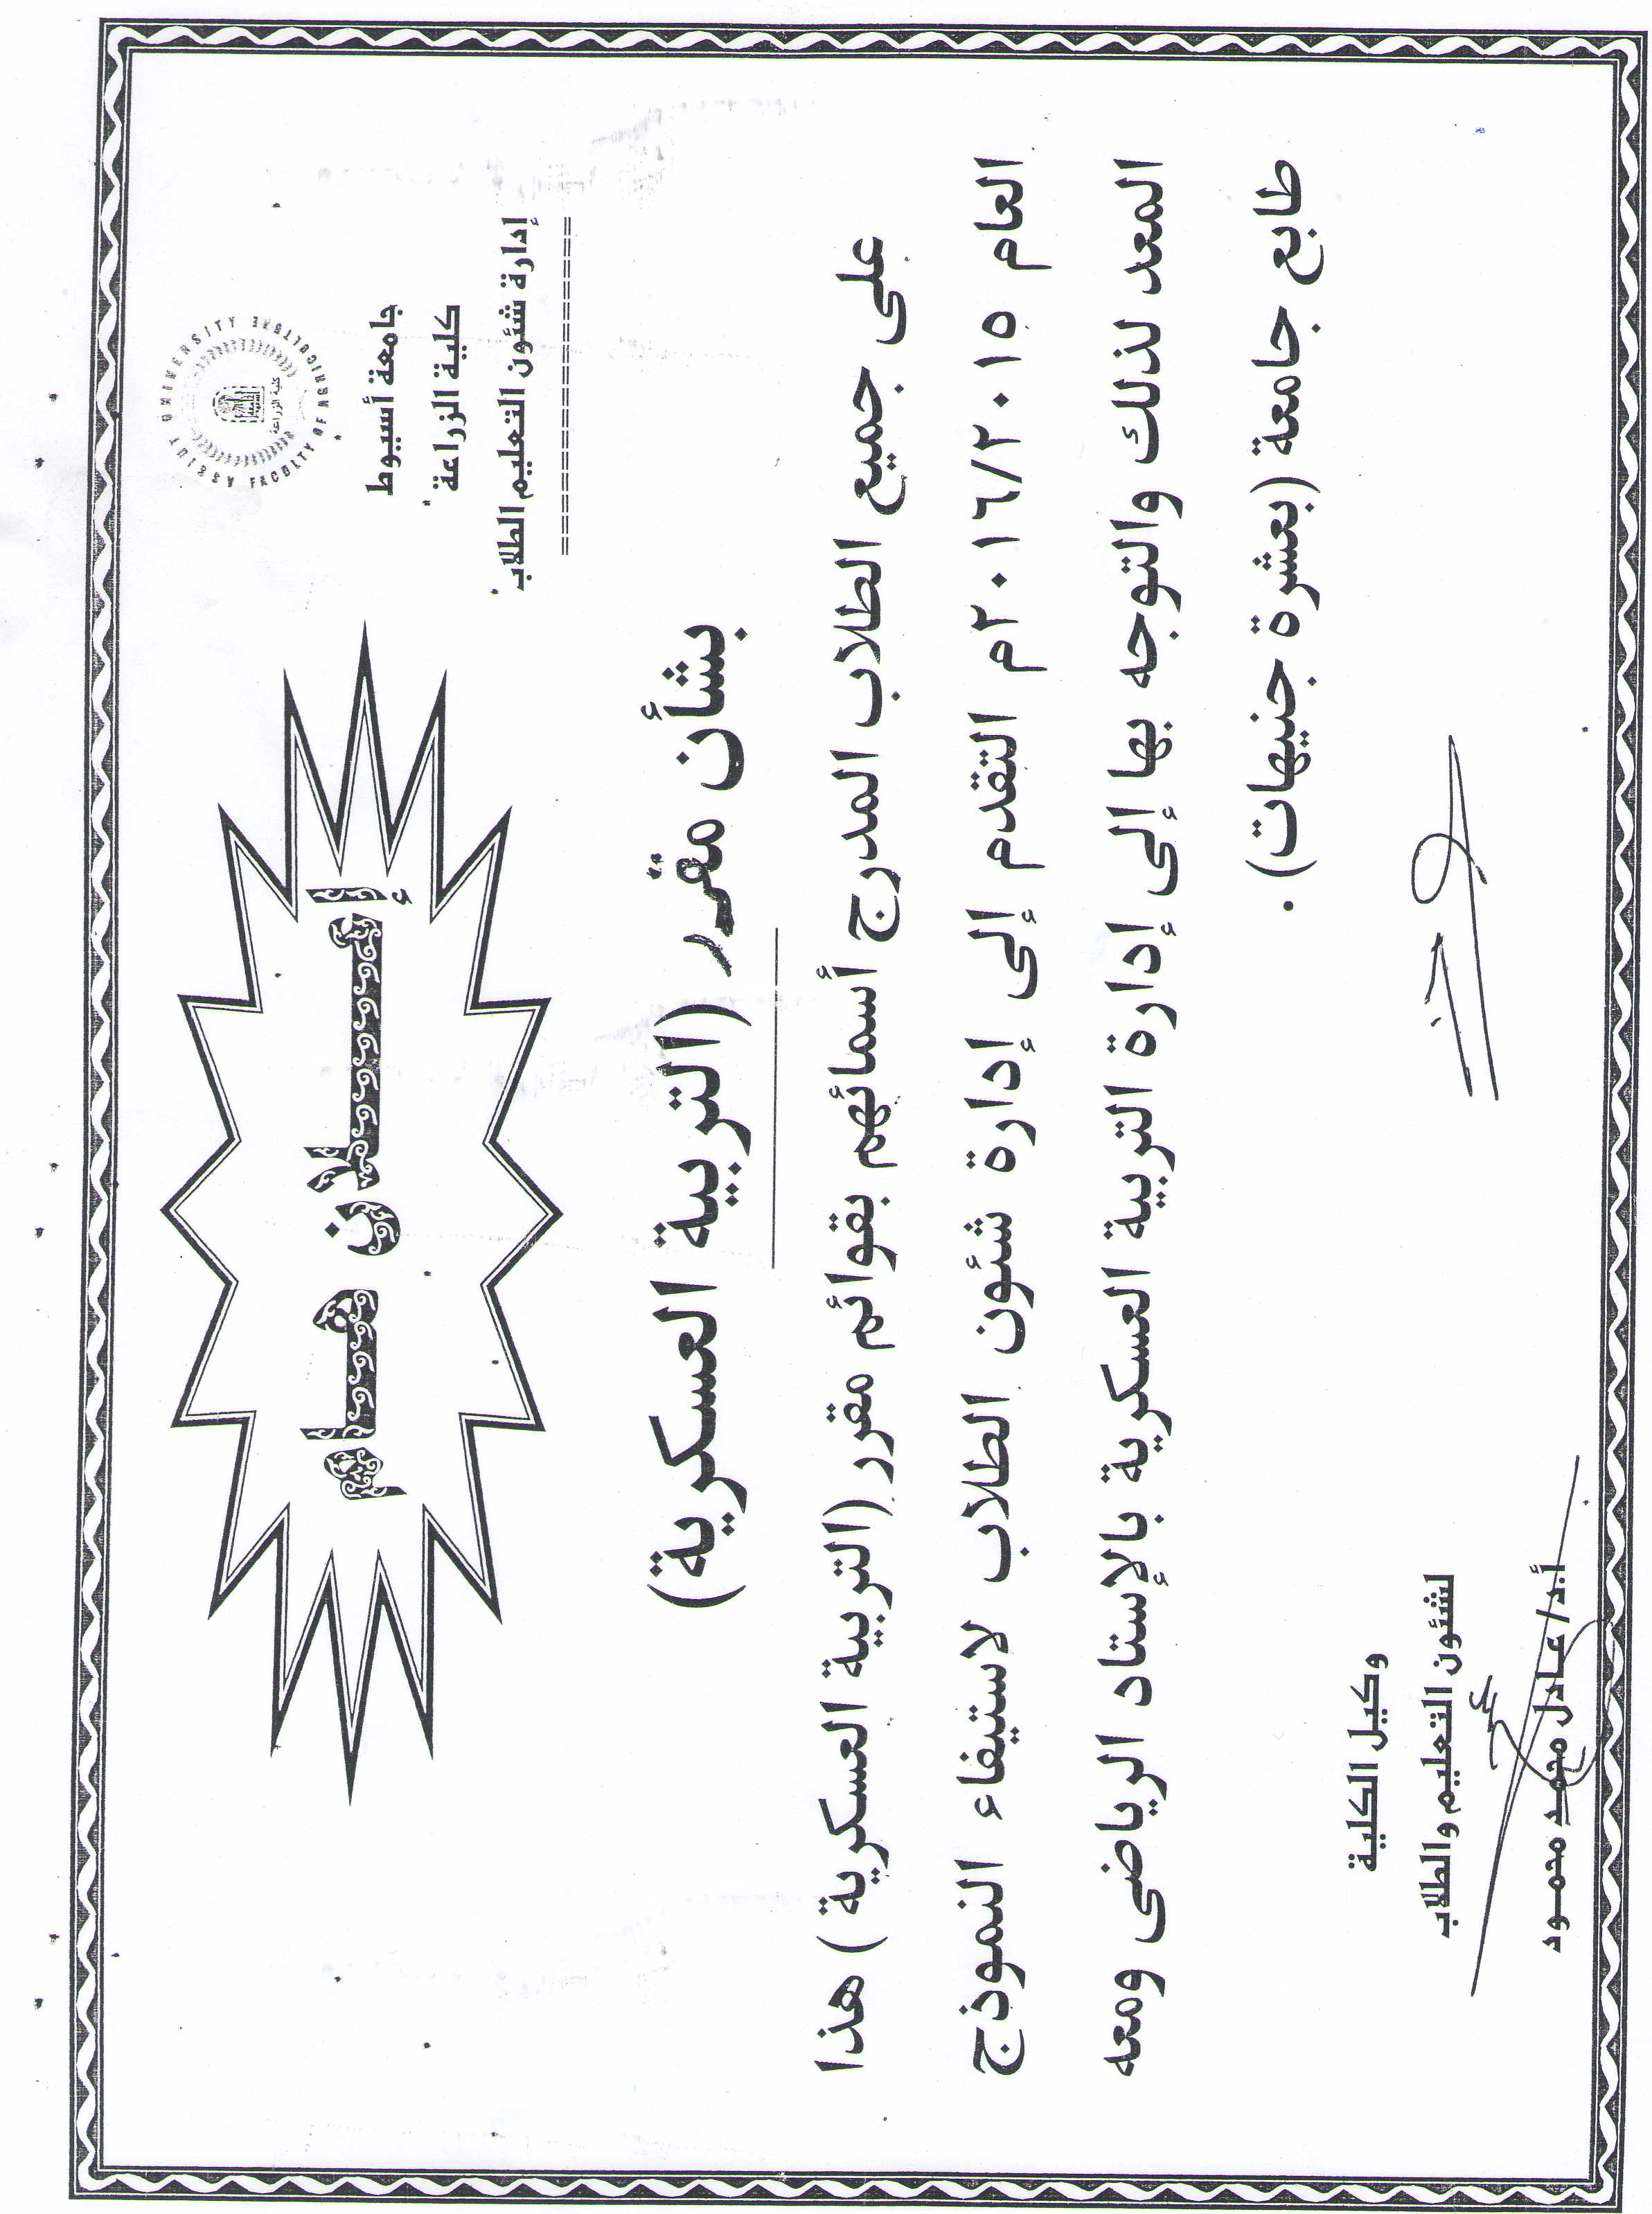 ASSIUT UNIVERSITY FACULTY OF AGRICULTURE
كلية الزراعة
جامعة أسيوط
كلية الزراعة
إدارة شئون التعليم الطلاب
===================
إعلان هام
بشأن مقرر (التربية العسكرية)
على جميع الطلاب المدرج أسمائهم بقوائم مقرر (التربية العسكرية ) هذا
العام ٢٠١٦/٢٠١٥م التقدم إلى إدارة شئون الطلاب لاستيفاء النموذج
المعد لذلك والتوجه بها إلى إدارة التربية العسكرية بالإستاد الرياضى ومعه
طابع جامعة (بعشرة جنيهات) .
وكيل الكلية
لشئون التعليم والطلاب
أ.د/ عادل محمد محمود